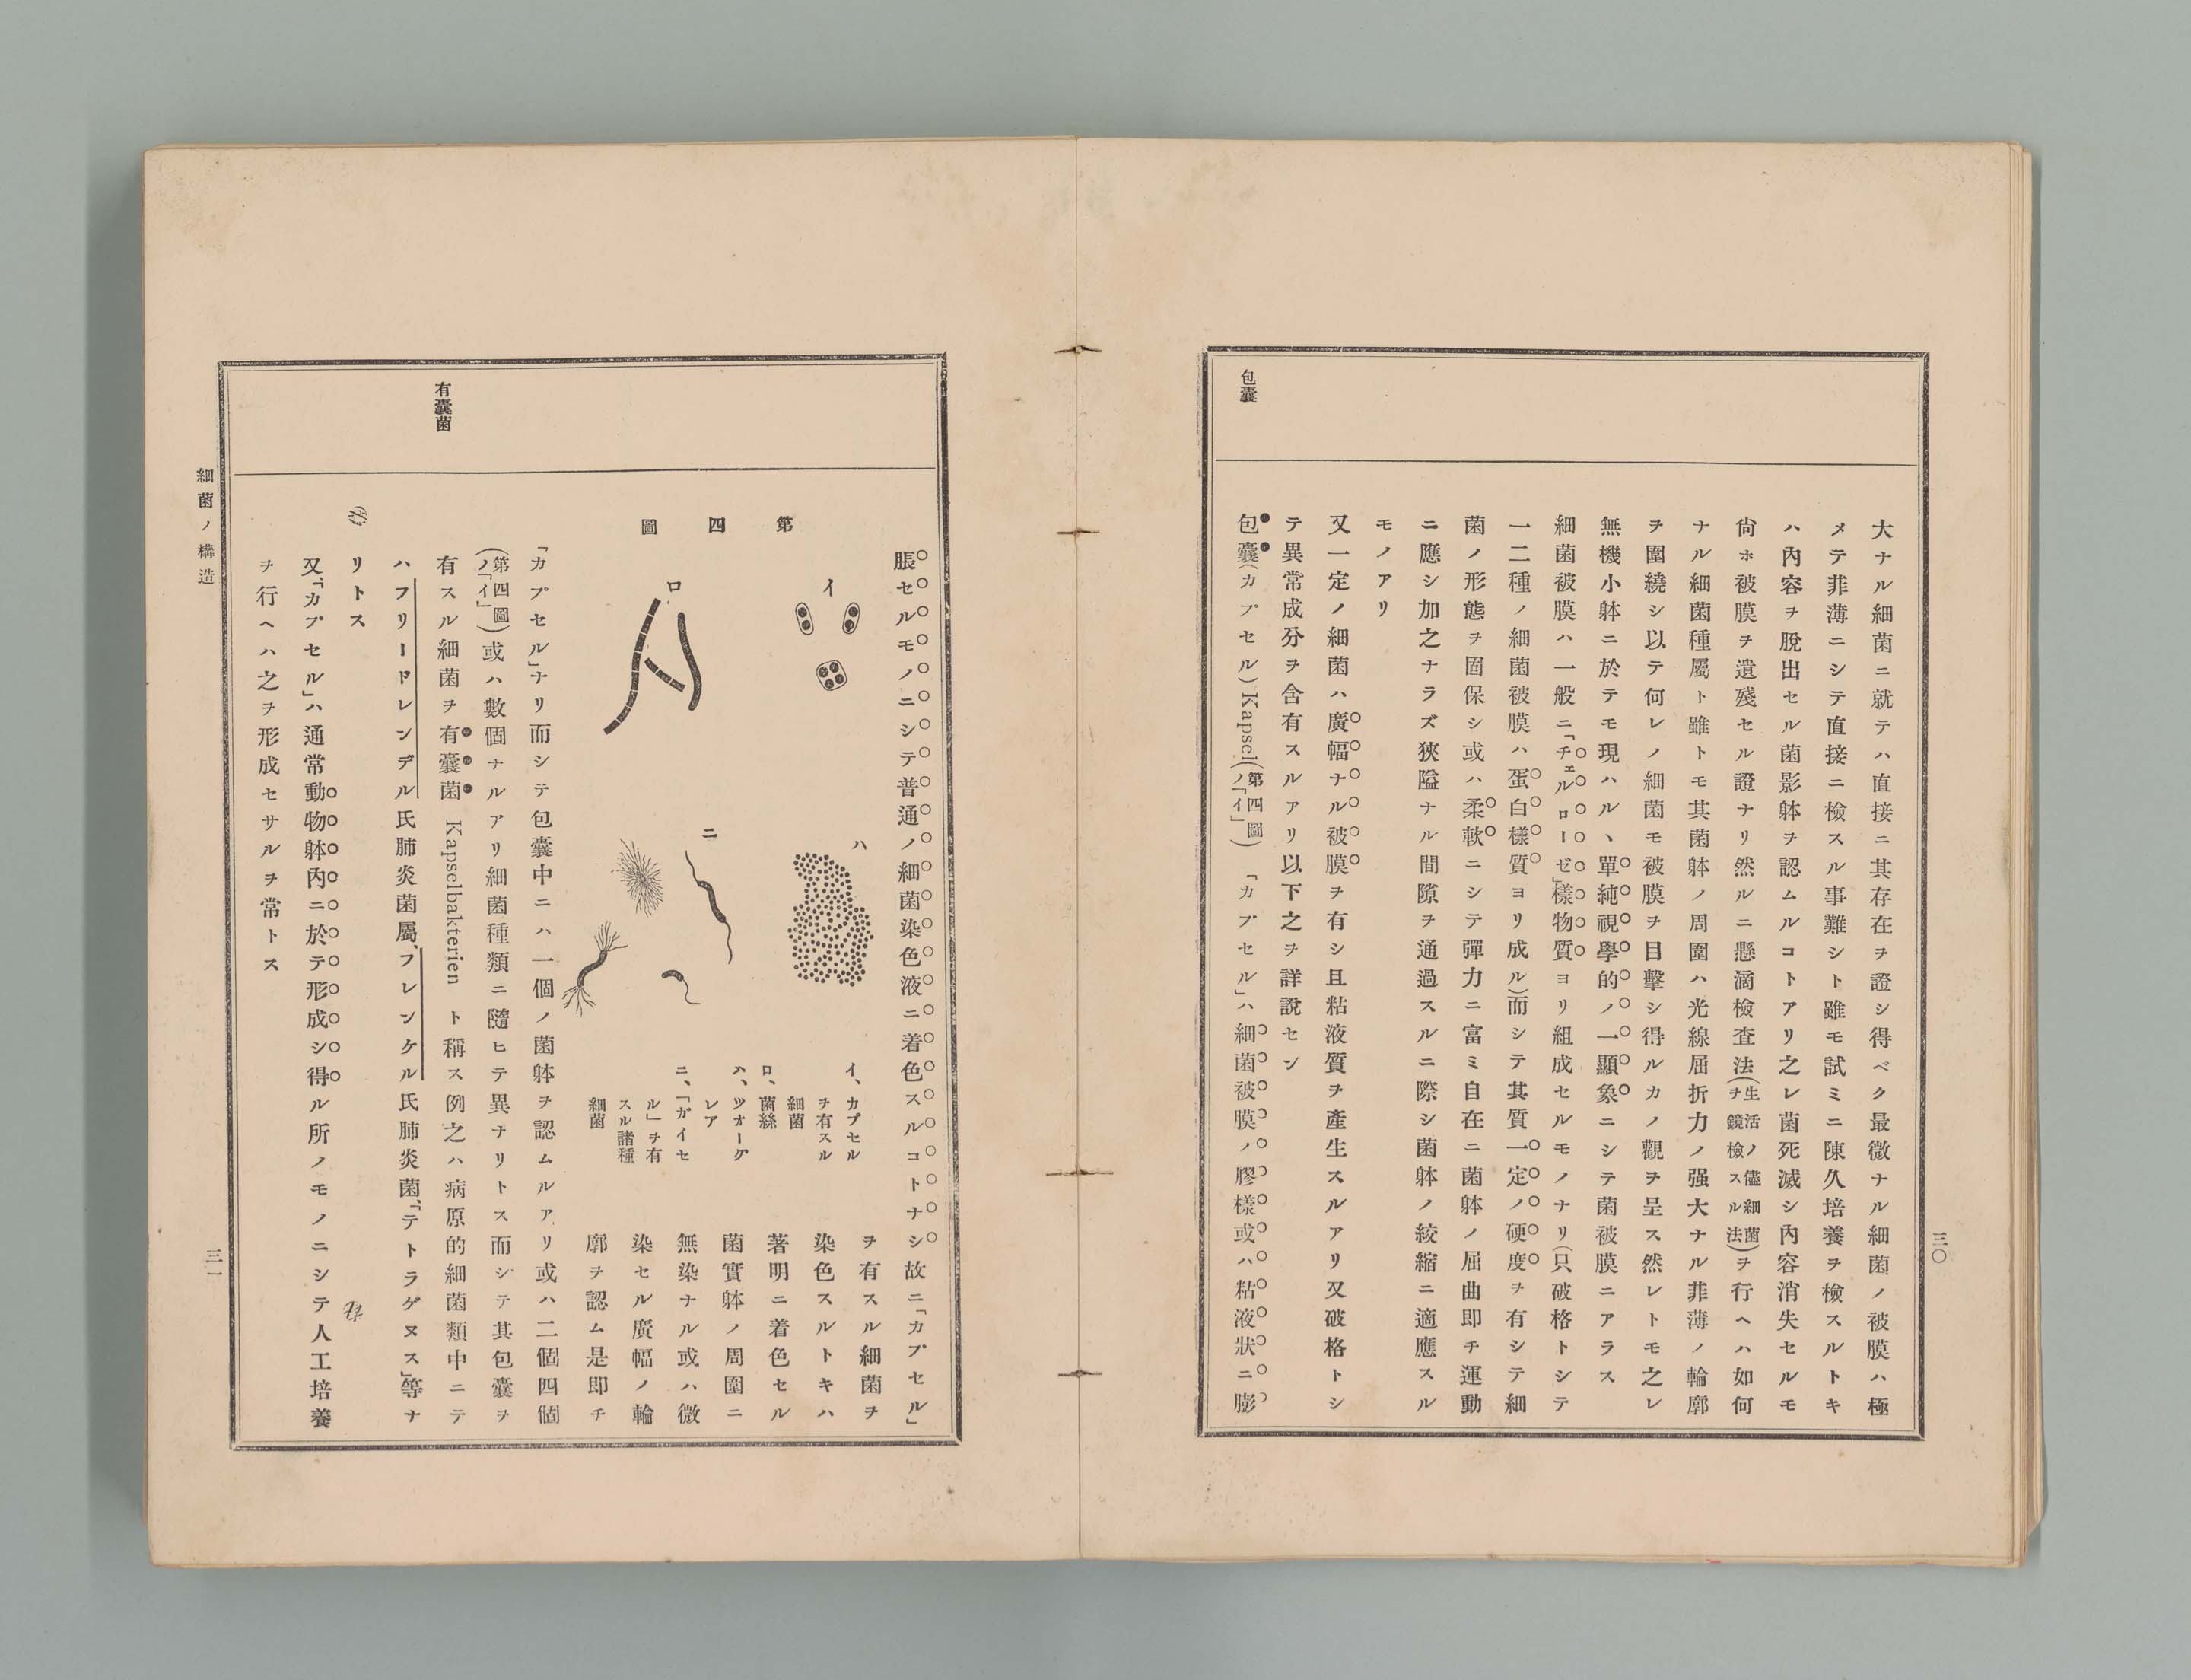 三〇
包囊
大ナル細菌ニ就テハ直接ニ其存在ヲ證シ得ベク最微ナル細菌ノ被膜ハ極
メテ菲薄ニシテ直接ニ檢スル事難シト雖モ試ミニ陳久培養ヲ檢スルトキ
ハ內容ヲ脫出セル菌影躰ヲ認ムルコトアリ之レ菌死滅シ內容消失セルモ
尙ホ被膜ヲ遺殘セル證ナリ然ルニ懸滴檢査法(生活ノ儘細菌ヲ鏡檢スル法)ヲ行ヘハ如何
ナル細菌種屬ト雖トモ其菌躰ノ周圍ハ光線屈折力ノ强大ナル菲薄ノ輪廓
ヲ圍繞シ以テ何レノ細菌モ被膜ヲ目擊シ得ルカノ觀ヲ呈ス然レトモ之レ
無機小躰ニ於テモ現ハルヽ單純視學的ノ一顯象ニシテ菌被膜ニアラス
細菌被膜ハ一般ニ「チェルローゼ」樣物質ヨリ組成セルモノナリ(只破格トシテ
一二種ノ細菌被膜ハ蛋白樣質ヨリ成ル)而シテ其質一定ノ硬度ヲ有シテ細
菌ノ形態ヲ固保シ或ハ柔軟ニシテ彈力ニ富ミ自在ニ菌躰ノ屈曲即チ運動
ニ應シ加之ナラズ狹隘ナル間隙ヲ通過スルニ際シ菌躰ノ絞縮ニ適應スル
モノアリ
又一定ノ細菌ハ廣幅ナル被膜ヲ有シ且粘液質ヲ產生スルアリ又破格トシ
テ異常成分ヲ含有スルアリ以下之ヲ詳說セン
包囊(カプセル)Kapsel(第四圖ノ「イ」)「カプセル」ハ細菌被膜ノ膠樣或ハ粘液狀ニ膨
脹セルモノニシテ普通ノ細菌染色液ニ着色スルコトナシ故ニ「カプセル」
ヲ有スル細菌ヲ
染色スルトキハ
著明ニ着色セル
菌實躰ノ周圍ニ
無染ナル或ハ微
染セル廣幅ノ輪
廓ヲ認ム是即チ
第四圖
イ
ロ
ハ
ニ
イ、カプセル
ヲ有スル
細菌
ロ、菌絲
ハ、ツオーグ
レア
ニ、「ガイセ
ル」ヲ有
スル諸種
細菌
「カプセル」ナリ而シテ包囊中ニハ一個ノ菌躰ヲ認ムルアリ或ハ二個四個
(第四圖ノ「イ」)或ハ數個ナルアリ細菌種類ニ隨ヒテ異ナリトス而シテ其包囊ヲ
有スル細菌ヲ有囊菌 Kapselbakterien ト稱ス例之ハ病原的細菌類中ニテ
ハフリードレンデル氏肺炎菌屬、フレンケル氏肺炎菌、「テトラゲヌス」等ナ
リトス
又、「カプセル」ハ通常動物躰內ニ於テ形成シ得ル所ノモノニシテ人工培養
ヲ行ヘハ之ヲ形成セサルヲ常トス
有囊菌
細菌ノ構造
三一